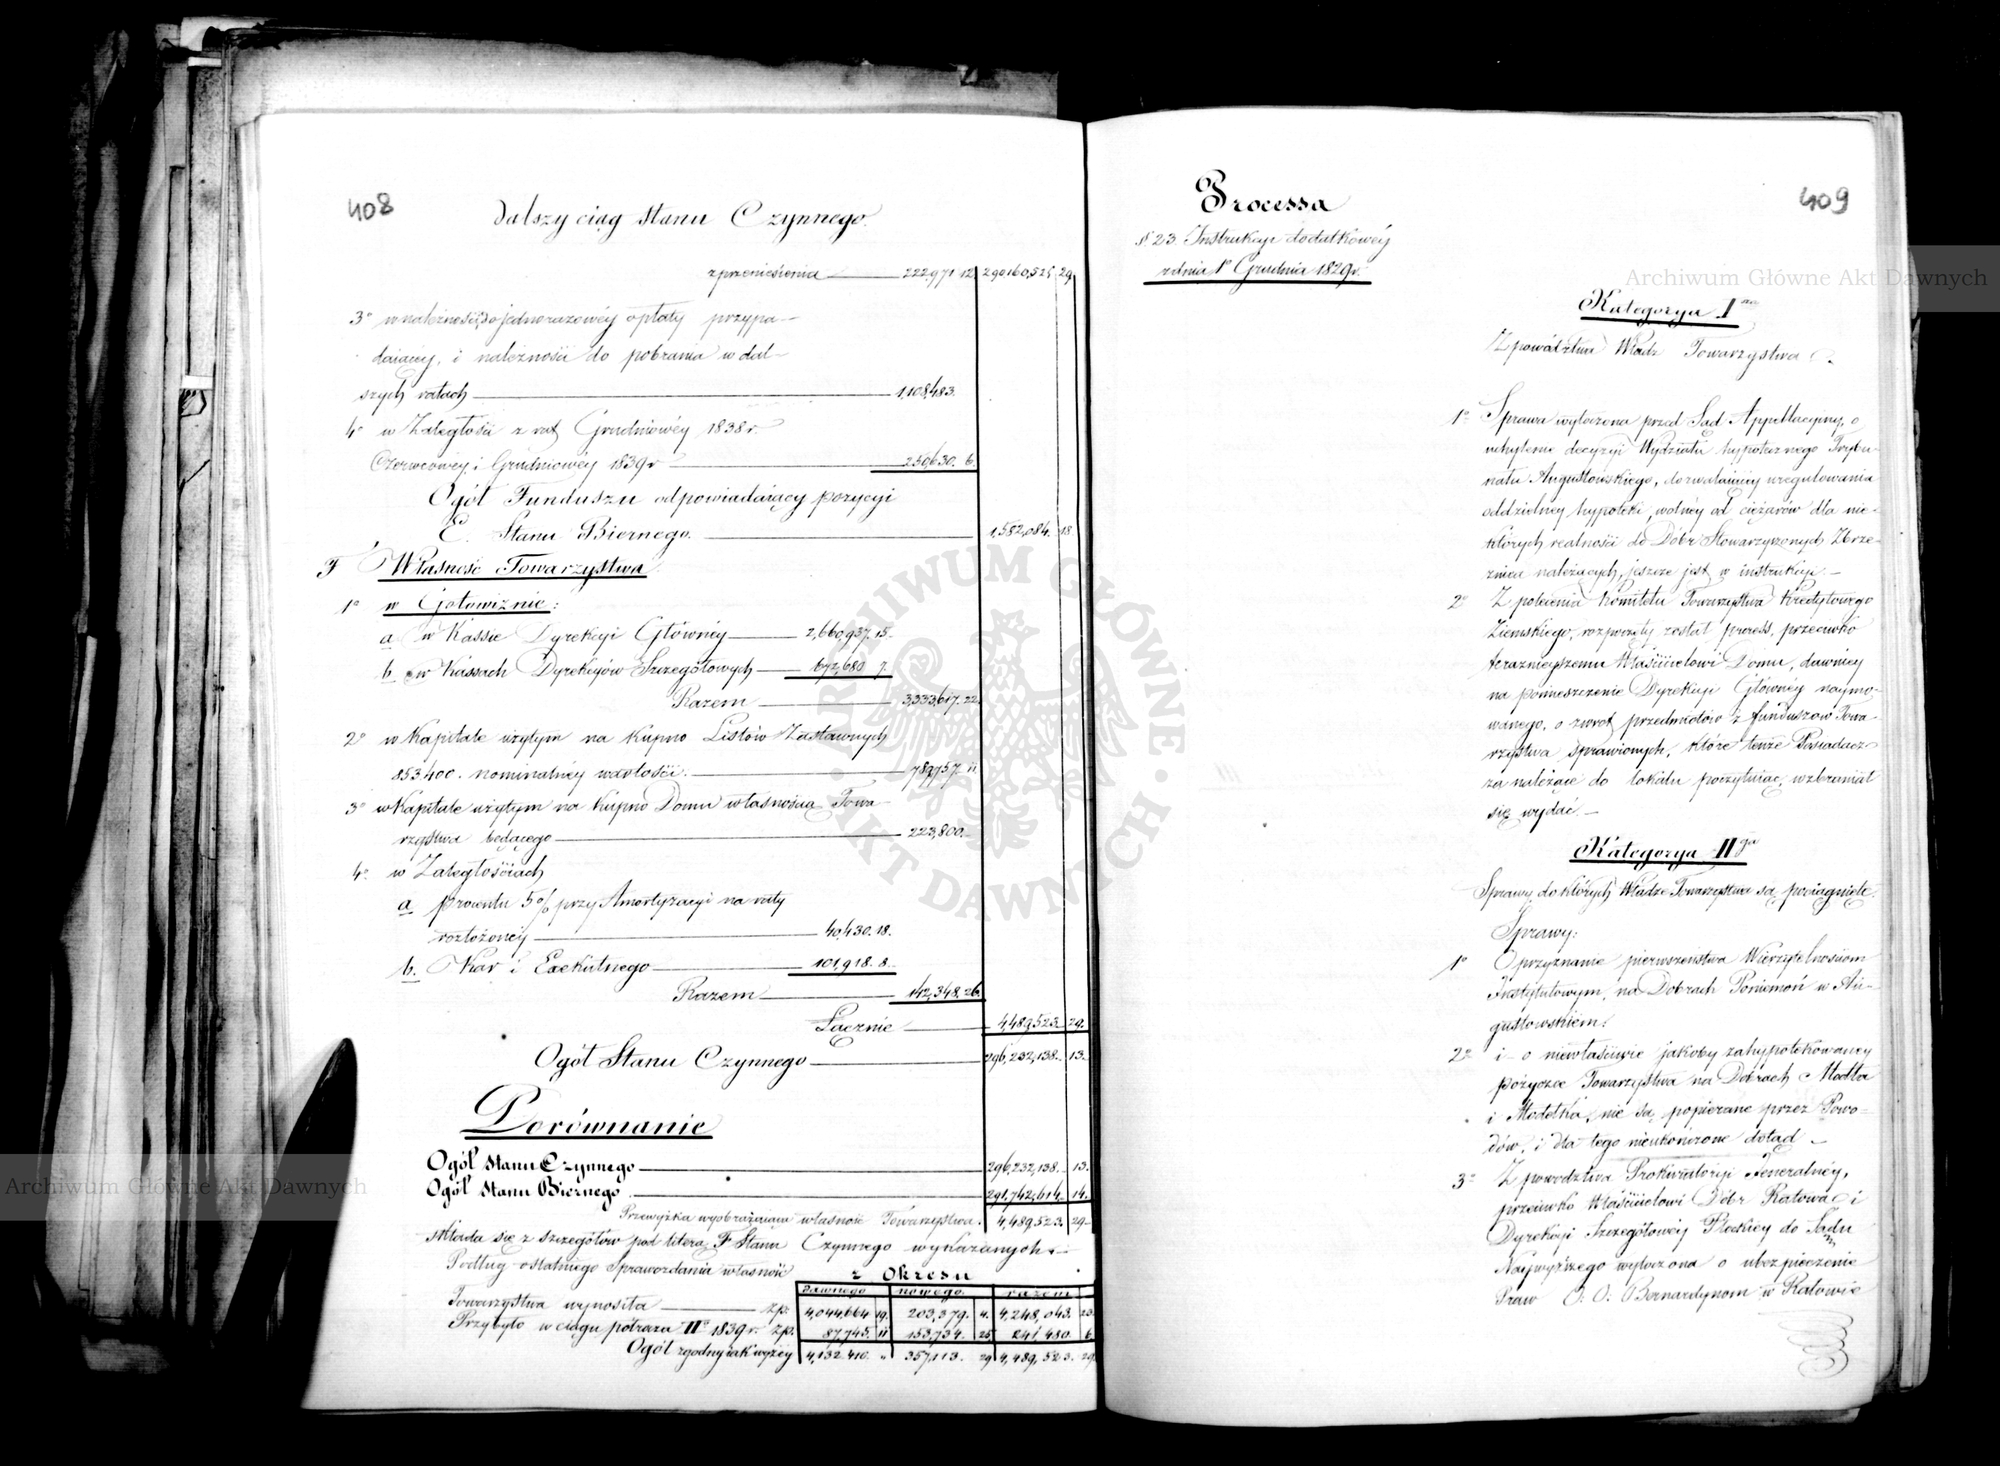 408
Dalszy ciąg Stanu Czynnego.
z przeniesienia 222,971 12 290,160,525 29
3° w należności do jednorazowéy opłaty przypa-
daiącey, i należności do pobrania w dal-
szych ratach 1,108,483.
4° w Zaległości z rat Grudniowéy 1838 r.
Czerwcowey i Grudniowéy 1839 r 250,630. 6.
Ogół Funduszu odpowiadaiący pozycyi
E. Stanu Biernego. 1,582,084. 18.
F Własność Towarzystwa
1° w Gotowiźnie:
a w Kassie Dyrekcyi Główney 2,660,937. 15.
b. w Kassach Dyrekcyów Szczegółowych 672,680 7.
Razem 3,333,617. 22.
2° w Kapitale użytym na kupno Listów Zastawnych
853,400. nominalnéy wartości. 789,757. 11
3° w Kapitale użytym na Kupno Domu własnością Towa-
rzystwa będącego 223,800.
4° w Zaległościach
a procentu 5% przy Amortyzacyi na raty
rozłożoney 40,430. 18.
b. Kar i Exekutnego 101,918. 8.
Razem 142,348. 26.
Łącznie 4,489,523. 29.
Ogół Stanu Czynnego 296,232,138. 13.
Porównanie
Ogół Stanu Czynnego 296,232,138. 13.
Ogół Stanu Biernego 291,742,614. 14.
Przewyżka wyobrażaiąca własność Towarzystwa. 4,489,523. 29
składa się z szczegółów pod literą F Stanu Czynnego wykazanych.
Podług ostatniego Sprawozdania własność
z Okresu
dawnego nowego razem
Towarzystwa wynosiła zp. 4,044,664 19. 203,379. 4. 4,248,043. 23.
Przybyło w ciągu półroza II° 1839 r. zp. 87,745. 11 153,734. 25. 241,480. 6
Ogół zgodny iak wyżey 4,132,410. „ 357,113. 29 4,489,523. 29.
409
Processa
§. 23. Instrukcyi dodatkowéy
z dnia 1° Grudnia 1829 r.
Kategorya I
Z powództwa Władz Towarzystwa
1° Sprawa wytoczona przed Sąd Appellacyjny, o
uchylenie decyzyi Wydziału hypotecznego Trybu-
nału Augustowskiego, dozwalaiącey uregulowania
oddzielney hypoteki, wolnéy od ciężarów dla nie-
których realności do Dóbr Stowarzyszonych Zbrze-
znica należących, jeszcze jest w instrukcyi. –
2° Z polecenia Komitetu Towarzystwa Kredytowego
Ziemskiego, rozpoczęty został process, przeciwko
teraznieyszemu Właścicielowi Domu, dawniey
na pomieszczenie Dyrekcyi Główney naymo-
wanego, o zwrot przedmiotów z funduszów Towa-
rzystwa sprawionych, które tenże Posiadacz
za należące do lokalu poczytuiąc, wzbraniał
się wydać. –
Kategorya II ga
Sprawy, do których Władze Towarzystwa są pociągnięte.
Sprawy:
1° O przyznanie pierwszeństwa Wierzytelnościom
Instytutowym, na Dobrach Poniemoń w Au-
gustowskiem:
2° i – o niewłaściwie jakoby zahypotekowaney
pożyczce Towarzystwa na Dobrach Modła
i Modełka, nie są popierane przez Powo-
dów, i dla tego nieukończone dotąd –
3° Z powództwa Prokuratoryi Jeneralnéy,
przeciwko Właścicielowi Dóbr Ratowa i
Dyrekcyi Szczegółowéy Płockiey do Sądu
Naywyższego wytoczona o ubezpieczenie
Praw O. O. Bernardynom w Ratowie
Archiwum Główne Akt Dawnych
Archiwum Główne Akt Dawnych
ARCHIWUM GŁÓWNE · AKT DAWNYCH ·